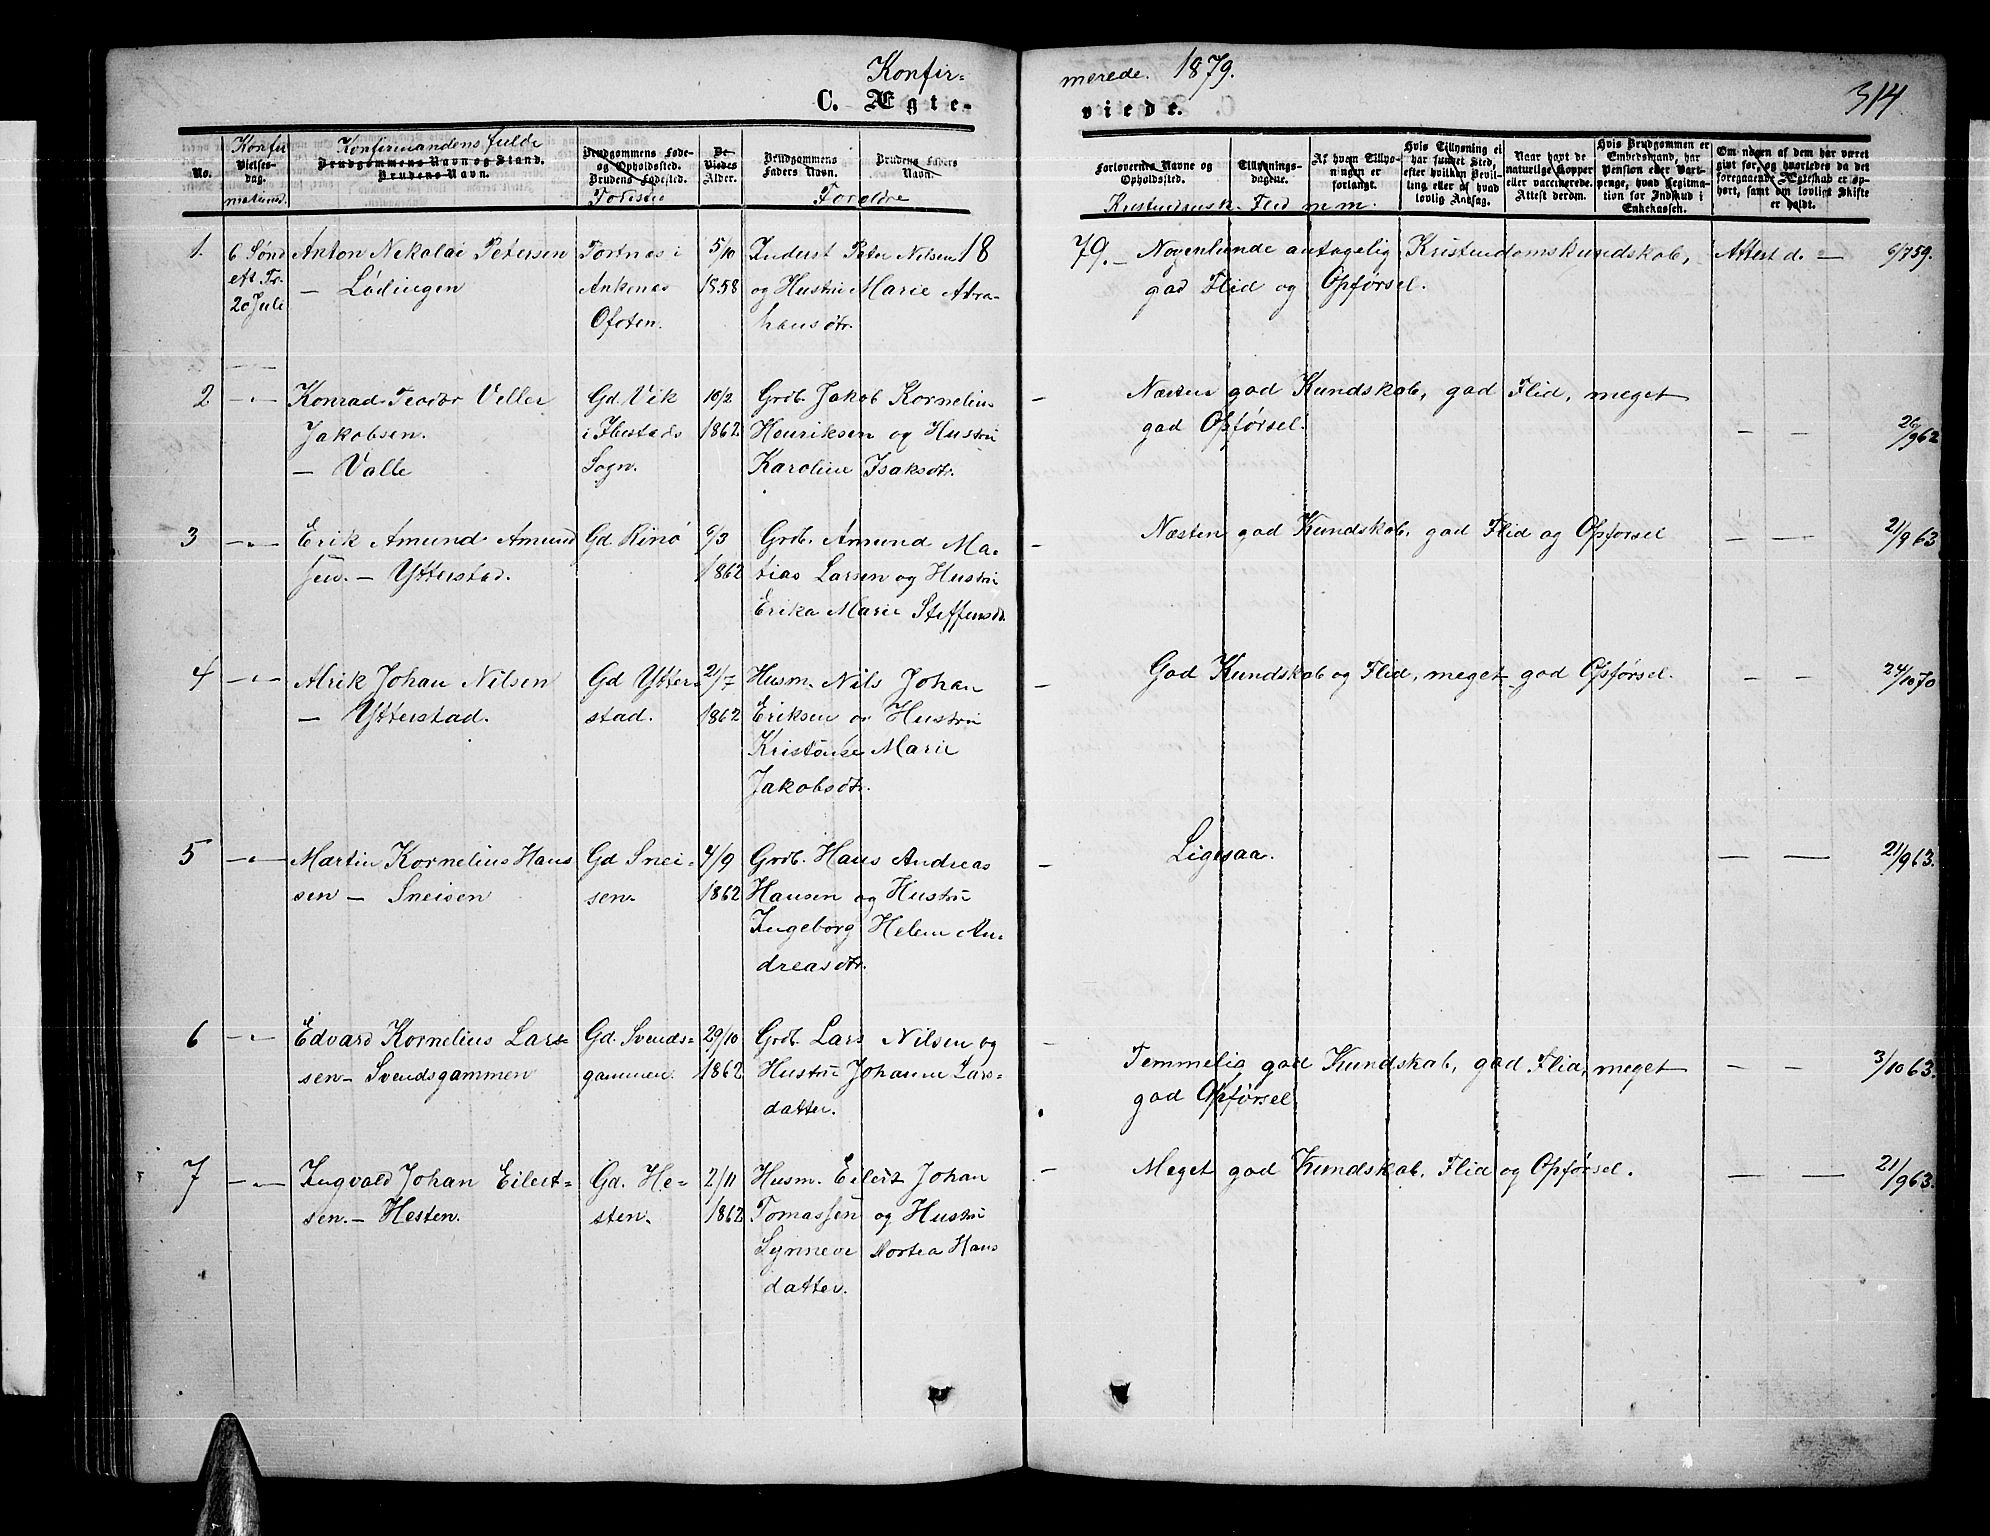 Konfir-
merede. 1879.
314
C. Ægte-
viede.
No.
Konfir
Vielses-
dag.
mationsd.
Konfirmandens fulde
Brudgommens Navn og Stand.
Brudens Navn.
Brudgommens Føde-
og Opholdssted.
Brudens Fødested.
Fødested
De
Viedes
Alder.
Brudgommens
Faders Navn.
Brudens Faders
Navn.
Forældre
Forlovernes Navne og
Opholdssted.
Tillysnings-
dagene.
Af hvem Tillys-
ningen er
forlangt.
Hvis Tillysning ei
har fundet Sted,
efter hvilken Bevil-
ling eller af hvad
lovlig Aarsag.
Naar havt de
naturlige Kopper
eller vaccinerede.
Attest derom.
Hvis Brudgommen er
Embedsmand, har
Pension eller Vart-
penge, hvad Legitima-
tion for Indskud i
Enkekassen.
Om nogen af dem har været
gift før, og hvorledes da det
foregaaende Ægteskab er op-
hørt, samt om lovligt Skifte
er holdt.
Kristendomsk. Flid m.m.
1. 6 Sønd Anton Nikolai Petersen Fortnes i 5/10 Inderst Peter Nilsen 18 79. – Nogenlunde antagelig Kristendomskundskab, Attest d. – 6/7 59.
eft. Tr. – Lødingen Ankenes 1858 og Hustru Marie Abra- god Flid og Opførsel.
20 Juli Ofoten. hamsdtr.
2 –„– Konrad Teodor Veller Gd. Vik 10/2 Grdb. Jakob Kornelius – Næsten god Kundskab, god Flid, meget
Jakobsen. i Ibestads 1862 Henriksen og Hustru god Opførsel. – – 26/9 62
– Valle Sogn. Karoline Isaksdtr.
3 –„– Erik Amund Amund Gd Rinø 6/3 Grdb. Amund Ma- – Næsten god Kundskab, god Flid og Opførsel – – 21/9 63
sen. – Ytterstad. 1862 tias Larsen og Hustru
Erika Marie Steffensdt.
4 –„– Alrik Johan Nilsen Gd Ytter- 21/7 Husm. Nils Johan – God Kundskab og Flid, meget god Opførsel. – – 24/10 70
– Ytterstad. stad. 1862 Eriksen og Hustru
Kristense Marie
Jakobsdtr.
5 –„– Martin Kornelius Hans Gd Snei- 4/9 Grdb. Hans Andreas – Ligesaa. – – 21/9 63.
sen – Sneisen sen. 1862 Hansen og Hustru
Ingeborg Helene An-
dreasdtr.
6 –„– Edvard Kornelius Lars- Gd. Svends- 29/10 Grdb. Lars Nilsen og –
sen – Svendsgammen gammen. 1862 Hustru Johanne Lars- Temmelig god Kundskab, god Flid, meget 3/10 63.
datter. god Opførsel.
7 –„– Ingvald Johan Eilert- Gd. He- 2/11 Husm. Eilert Johan – Meget god Kundskab, Flid og Opførsel. – – 21/9 63.
sen. – Hesten. sten. 1862 Tomassen og Hustru
Synneve Dortea Hans
datter.